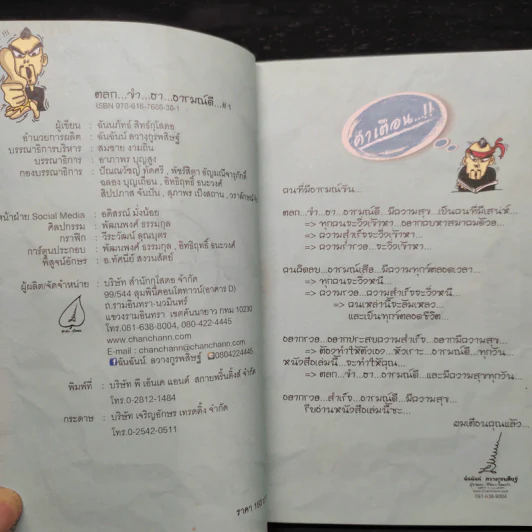 ตลก...ขำ...ฮา...อารมณ์ดี...#1
ISBN 970-616-7666-30-1
ผู้เขียน : ฉันนภัทธ์ สิทธ์กุโสดอ
อำนวยการผลิต : ฉันฉันน์ ลวางกูรพสิษฐ์
บรรณาธิการบริหาร : สมชาย งามถิ่น
บรรณาธิการ : อาภาพร บุญสูง
กองบรรณาธิการ : ปัณณวิชญ์ ทัดศรี, พัชรสิตา
ฉลอง บุญเถื่อน, อิทธิฤทธิ์ ธนะวงศ์
สิปปภาส จันปั่น, สุภาพร เป็งสถาน,
หน้าฝ่าย Social Media : อดิสรณ์ มั่งน้อย
ศิลปกรรม : พัฒนพงศ์ ธรรมกุล
กราฟิก : วีระวัฒน์ คุณบุตร
การ์ตูนประกอบ : พัฒนพงศ์ ธรรมกุล, อิทธิฤทธิ์ ธนะวงศ์
พิสูจน์อักษร : อ.ทัศนีย์ สงวนสัตย์
ผู้ผลิต/จัดจำหน่าย : บริษัท สำนักกุโสดอ จำกัด
99/544 ลุมพินีคอนโดทาวน์(อาคาร D)
ถ.รามอินทรา-นวมินทร์
แขวงรามอินทรา เขตคันนายาว กทม 10230
โทร.081-638-8004, 080-422-4445
www.chanchann.com
E-mail : chanchann@hotmail.com
ฉันฉันน์ ลวางกูรพสิษฐ์ 0804224445
พิมพ์ที่ : บริษัท พี เอ็นเค แอนด์ สกายพริ้นติ้งส์ จำกัด
โทร.0-2812-1484
กระดาษ : บริษัท เจริญอักษร เทรดดิ้ง จำกัด
โทร.0-2542-0511
ราคา
คำเตือน...!!
คนที่มีอารมณ์ขัน...
ตลก...ขำ...ฮา...อารมณ์ดี...มีความสุข...เป็นคนที่มีเสน่ห์...
=> ทุกคนจะวิ่งเข้าหา...อยากคบหาสมาคมด้วย...
=> ความสำเร็จจะวิ่งเข้าหา...
=> ความร่ำรวย...จะวิ่งเข้าหา...
คนคิดลบ...อารมณ์เสีย...มีความทุกข์ตลอดเวลา...
=> ทุกคนจะวิ่งหนี
=> ความรวย...ความสำเร็จจะวิ่งหนี
=> คนเหล่านี้จะล้มเหลว...
และเป็นทุกข์ตลอดชีวิต...
อยากรวย...อยากประสบความสำเร็จ...อยากมีความสุข...
=> ต้องทำให้ตัวเอง...หัวเราะ...อารมณ์ดี...ทุกวัน...
หนังสือเล่มนี้...จะทำให้คุณ...
=> ตลก...ขำ...ฮา...อารมณ์ดี...และมีความสุขทุกวัน...
อยากรวย...สำเร็จ...อารมณ์ดี...มีความสุข...
รีบอ่านหนังสือเล่มนี้ซะ...
ผมเตือนคุณแล้ว...
ฉันฉันน์ ลวางกูรพสิษฐ์
www.chanchann.com
081-638-8004